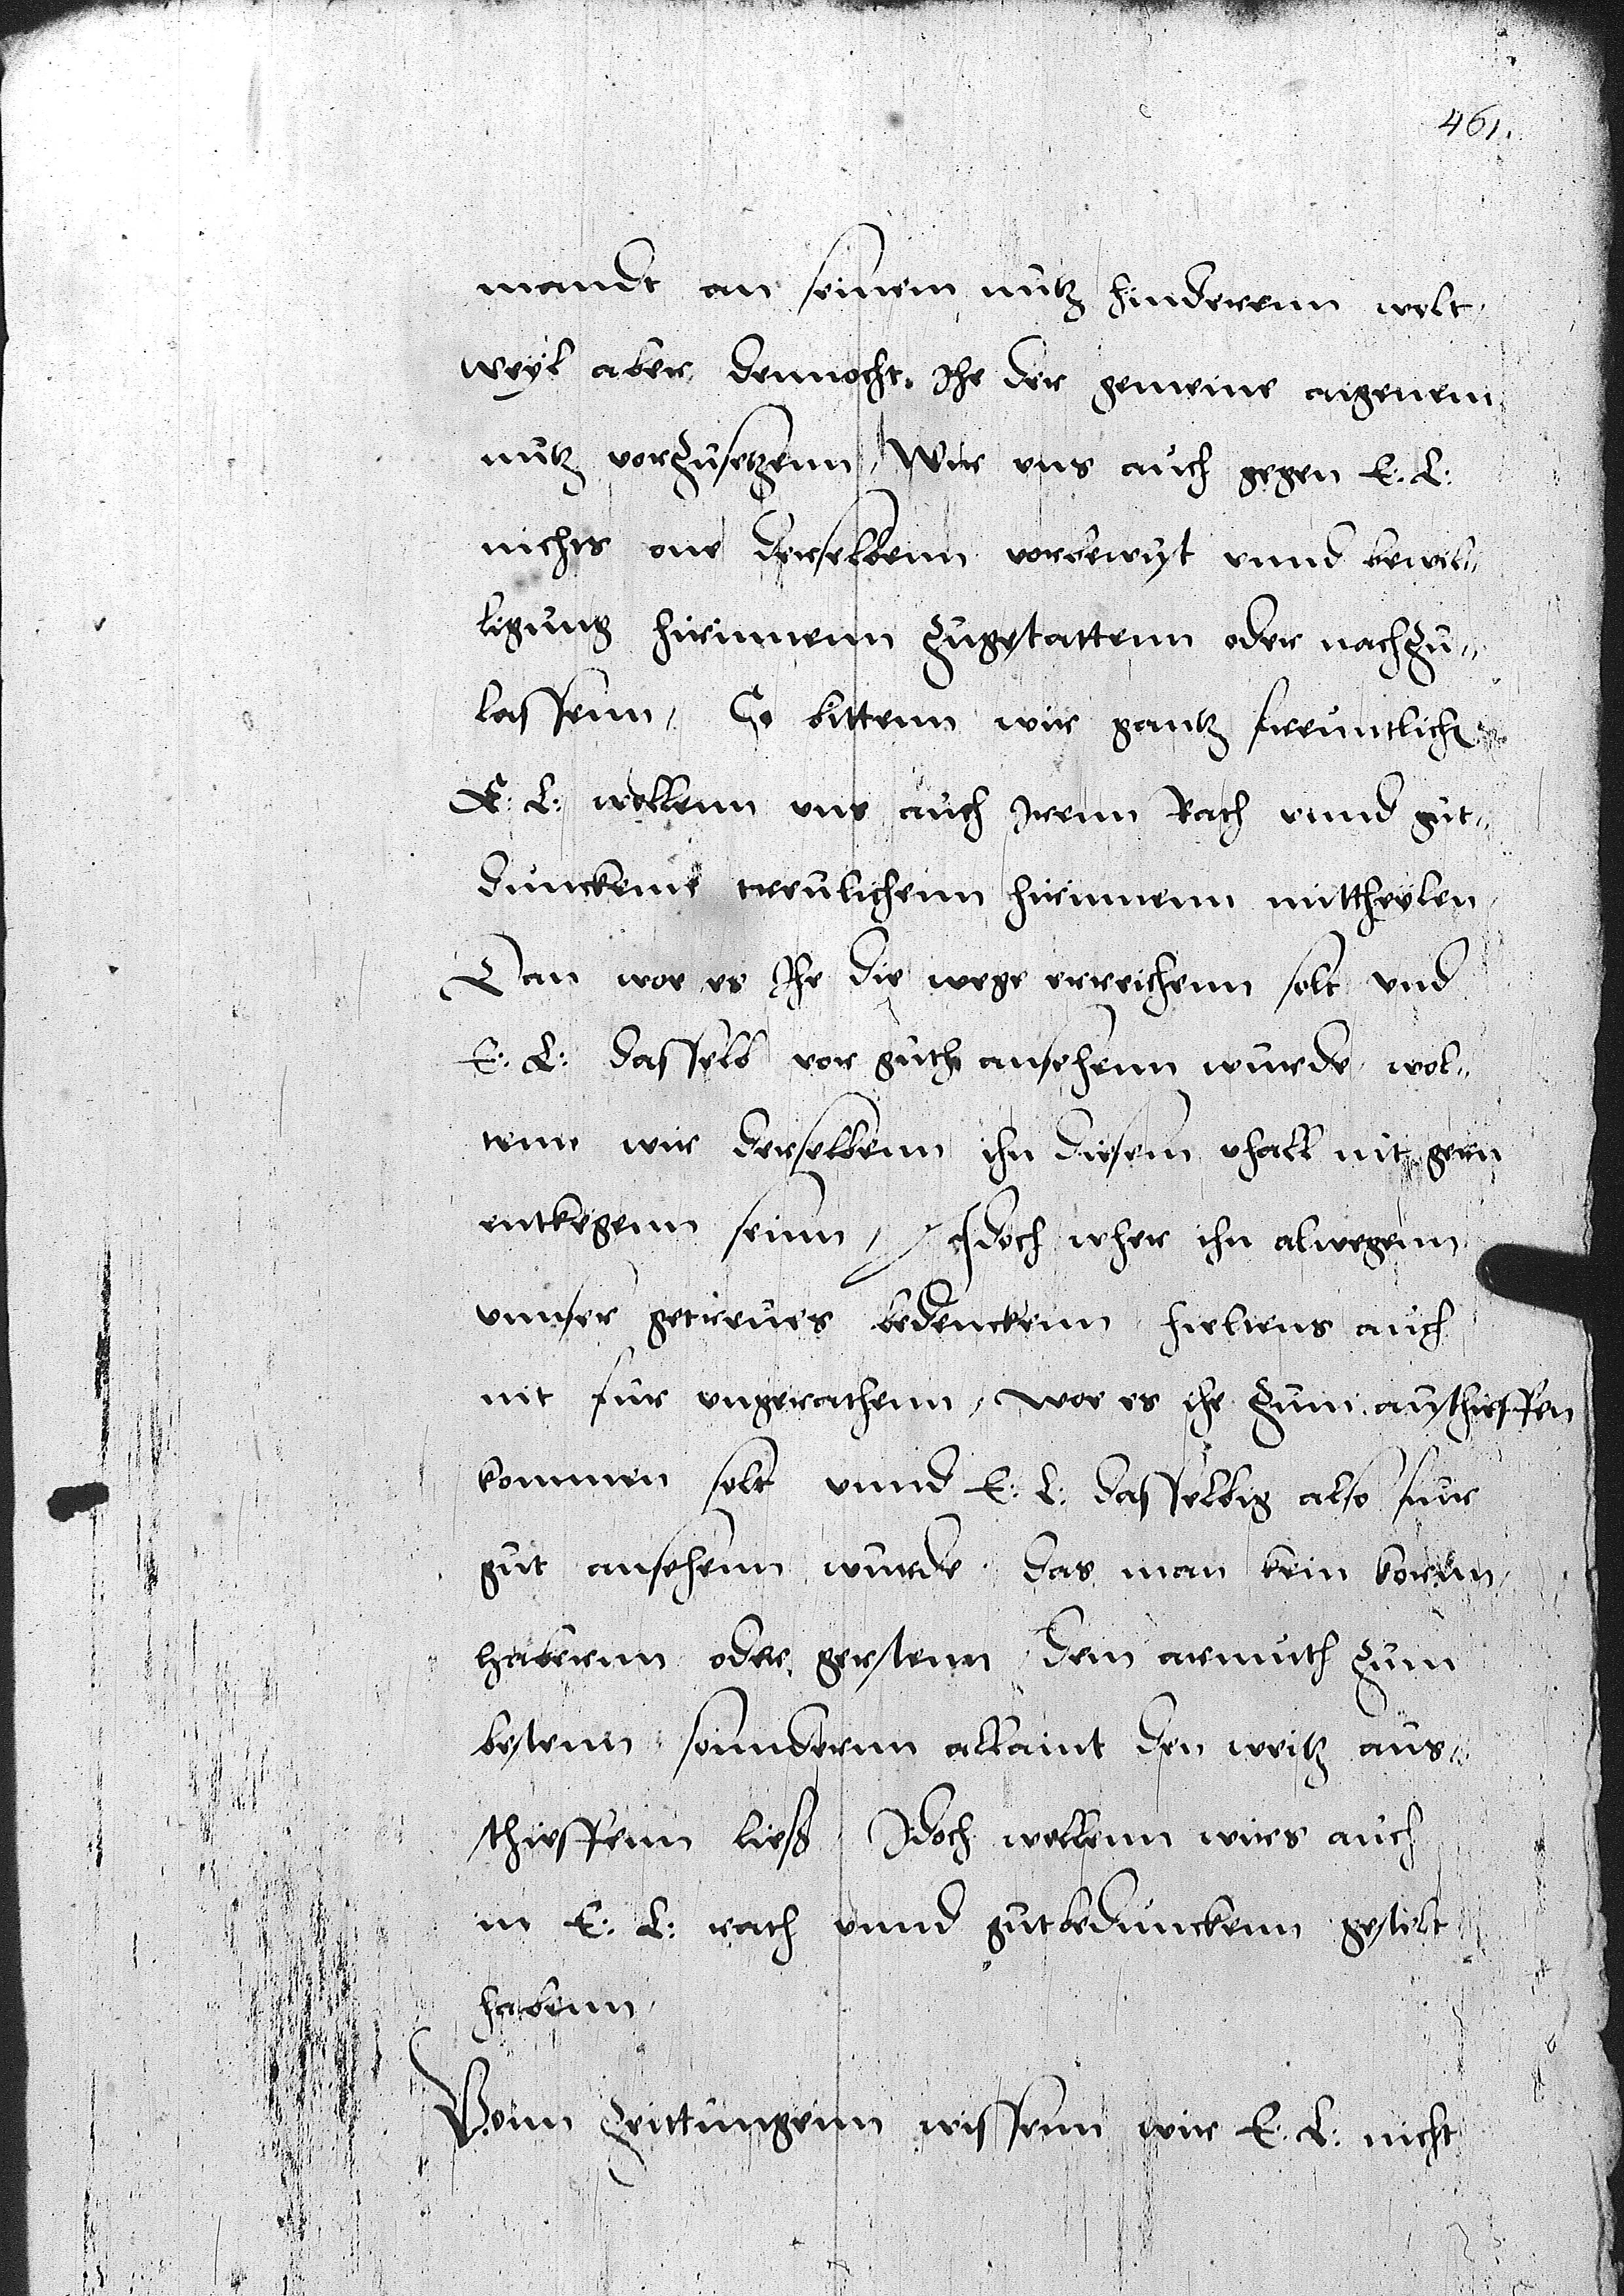 461.
mandt an seinem nutz hinderenn wolt,
weyl aber dennocht Ihe der gemeine aigenem
nutz vorzusetzenn, Wir uns auch gegen E. L:
nichts one derselbenn vorbewust unnd bewil„
ligung hirinnenn zugestattenn oder nachzu„
lassenn, So bittenn wir gantz freuntlich
E: L: wollenn uns auch Irenn Rath unnd gut„
dunckenn treulichenn hirinnenn mittheylen,
Dan woe es Ihe die wege erreichenn solt und
E: L: dasselb vor guth ansehenn wurde, wol„
tenn wir derselbenn ihn diesem vhall nit gern
entkegenn seinn, Idoch wher ihn alwegenn
unnser getreues bedenckenn, hieltens auch
nit fur ungerathenn, woe es ihe zum ausschiffen
kommen solt unnd E: L: dasselbig also fur
gut ansehenn wurde, das man kein kornn,
haberenn oder gerstenn, dem armuth zum
bestenn, sonnderenn allaint den weitz aus„
schiffenn liess, Idoch wollenn wirs auch
in E: L: rath unnd gutbedunckenn gestelt
habenn,
Vonn Zeittungenn wissenn wir E. L: nicht